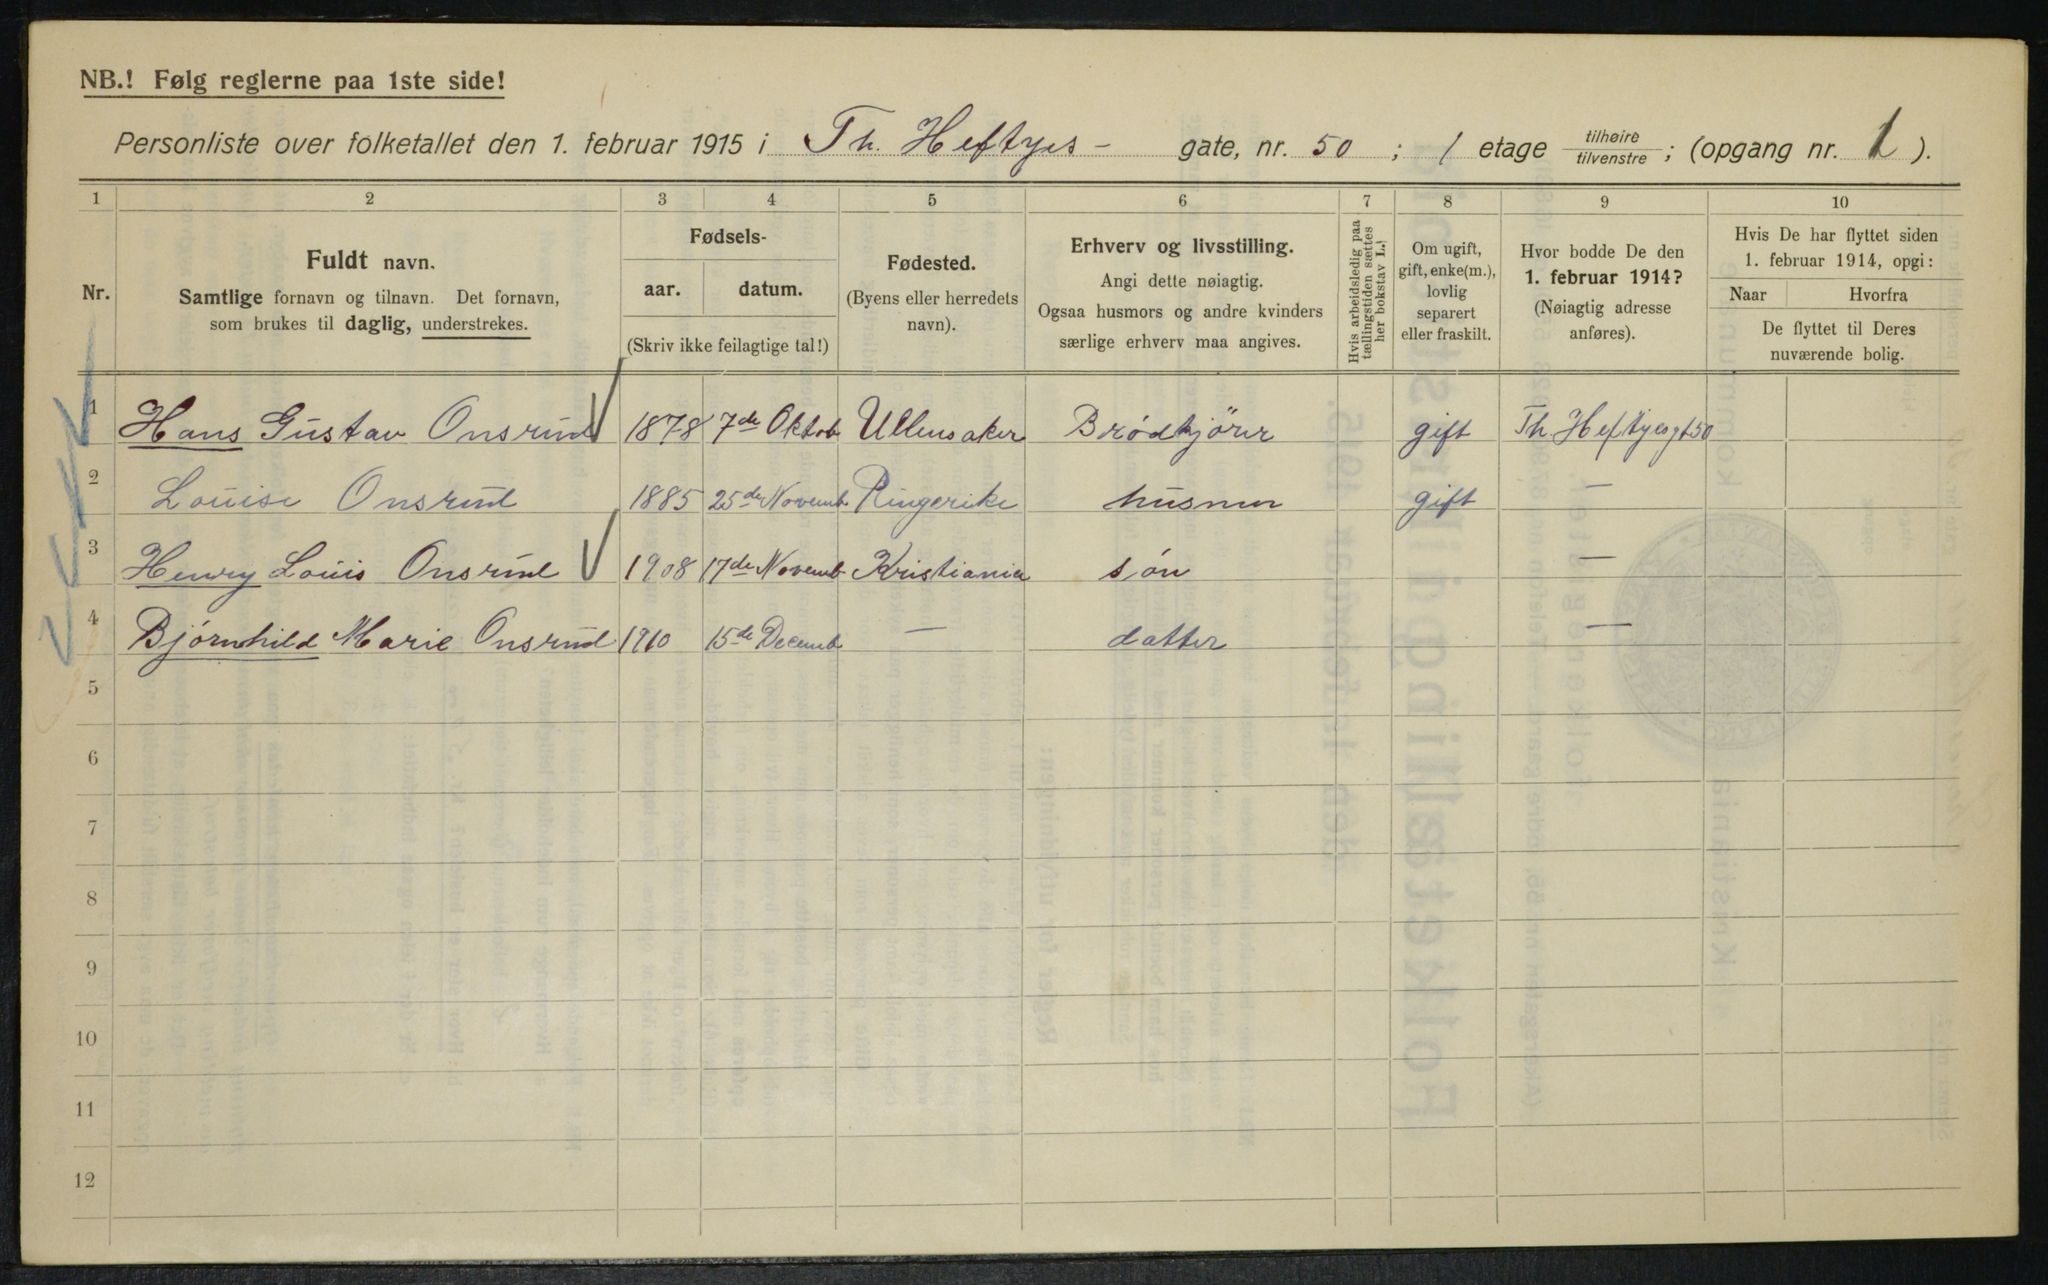 NB.! Følg reglerne paa 1ste side!
Personliste over folketallet den 1. februar 1915 i Th. Heftyes - gate, nr. 50 ; 1 etage tilhøire/tilvenstre ; (opgang nr. 1 ).
1 2 3 4 5 6 7 8 9 10
Nr.
Fuldt navn.
Samtlige fornavn og tilnavn. Det fornavn,
som brukes til daglig, understrekes.
Fødsels-
aar. datum.
(Skriv ikke feilagtige tal!)
Fødested.
(Byens eller herredets
navn).
Erhverv og livsstilling.
Angi dette nøiagtig.
Ogsaa husmors og andre kvinders
særlige erhverv maa angives.
Hvis arbeidsledig paa
tællingstiden sættes
her bokstav L.!
Om ugift,
gift, enke(m.),
lovlig
separert
eller fraskilt.
Hvor bodde De den
1. februar 1914?
(Nøiagtig adresse
anføres).
Hvis De har flyttet siden
1. februar 1914, opgi:
Naar Hvorfra
De flyttet til Deres
nuværende bolig.
1 Hans Gustav Onsrud 1878 7de Oktob Ullensaker Brødkjører gift Th. Heftyesgt 50
2 Louise Onsrud 1885 25de Novemb Ringerike husmor gift —
3 Henry Louis Onsrud 1908 17de Novemb Kristiania søn —
4 Bjørnhild Marie Onsrud 1910 15de Decemb — datter —
5
6
7
8
9
10
11
12